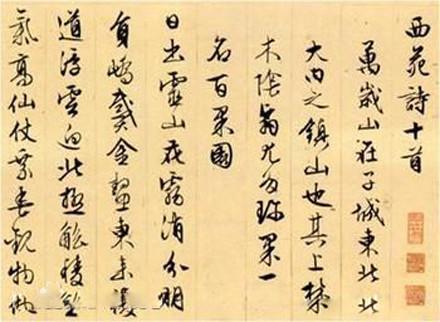 西苑詩十首
萬歲山在子城東北北
大內之鎮山也其上
木陰翳尤多珍果一
名百果園
日出靈山花霧消分明
員嶠戴金鰲東來複
道浮雲迥北極觚稜
氣高仙仗乘春觀物